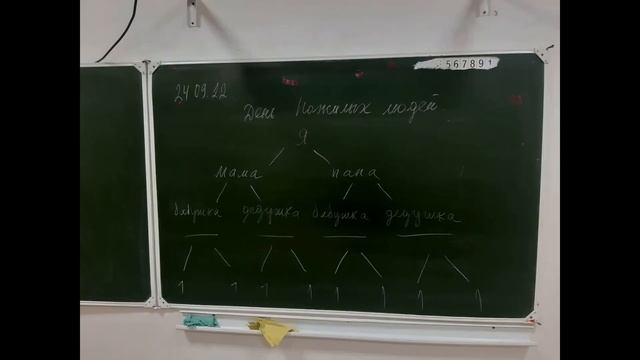 567891
24 09.22
День пожилых людей
Я
мама папа
бабушка дедушка бабушка дедушка
1 1 1 1 1 1 1 1